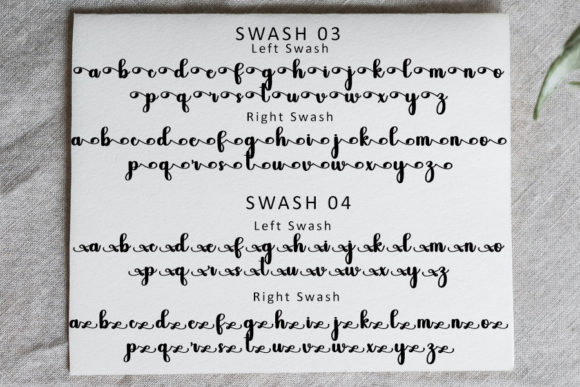 SWASH 03
Left Swash
abcdefghijklmno
pqrstuvwxyz
Right Swash
abcdefghijklmno
pqrstuvwxyz
SWASH 04
Left Swash
abcdefghijklmno
pqrstuvwxyz
Right Swash
abcdefghijklmno
pqrstuvwxyz